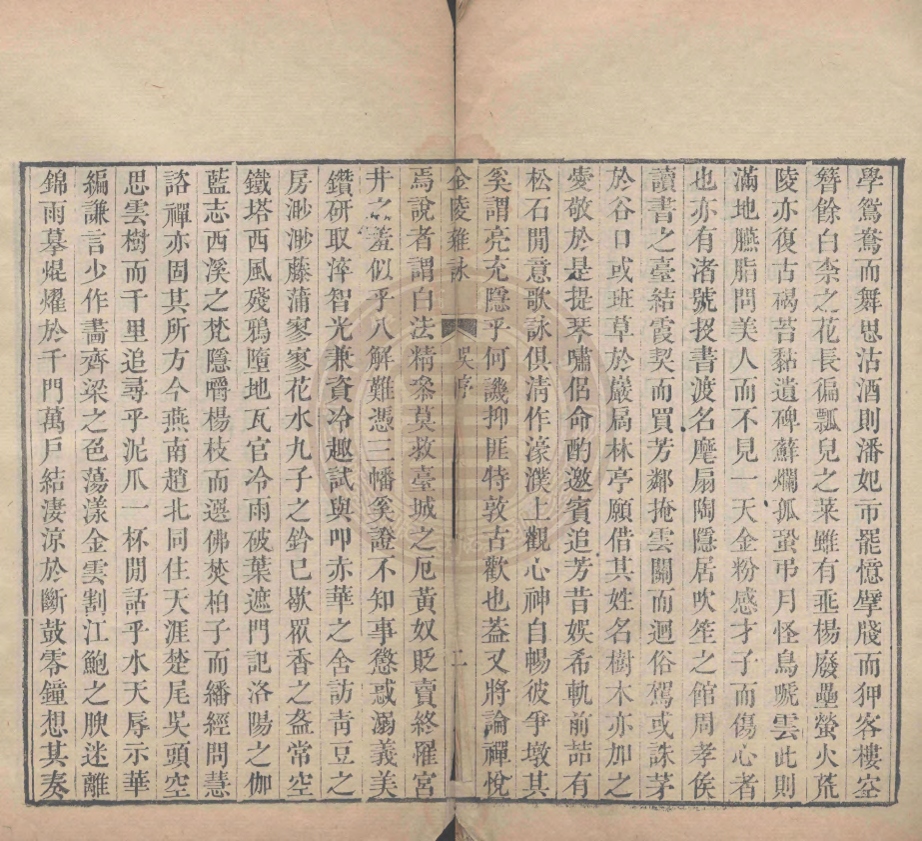 學鴛鴦而舞思沽酒則潘妃市罷憶擘牋而狎客樓空
簪餘白柰之花長徧瓢兒之菜雖有垂楊廢壘螢火荒
陵亦復古碣苔黏遺碑蘚爛孤蛩弔月怪鳥嗁雲此則
滿地臙脂問美人而不見一天金粉感才子而傷心者
也亦有渚號投書渡名麾扇陶隱居吹笙之館周孝侯
讀書之臺結霞契而買芳鄰掩雲關而迴俗駕或誅茅
於谷口或班草於巖扃林亭願借其姓名樹木亦加之
愛敬於是提琴嘯侶命酌邀賓追芳昔娛希軌前喆有
松石閒意歌詠俱淸作濠濮上觀心神自暢彼爭墩其
奚謂亮充隱乎何譏抑匪特敦古歡也葢又將論禪悅
金陵雜詠 吳序 二
焉說者謂白法精參莫救臺城之厄黃奴貶賣終罹宮
井之羞似乎八解難憑三幡奚證不知事懲惑溺義美
鑽研取淬智光兼資冷趣試與叩赤華之舍訪靑豆之
房渺渺藤蒲寥寥花水九子之鈴已歇眾香之龕常空
鐵塔西風殘鴉墮地瓦官冷雨破葉遮門記洛陽之伽
藍志西溪之梵隱嚼楊枝而選佛焚柏子而繙經問慧
諮禪亦固其所方今燕南趙北同住天涯楚尾吳頭空
思雲樹而千里追尋乎泥爪一杯閒話乎水天辱示華
編謙言少作畵齊梁之色蕩漾金雲割江鮑之腴迷離
錦雨摹焜燿於千門萬戶結淒涼於斷鼓零鐘想其奏